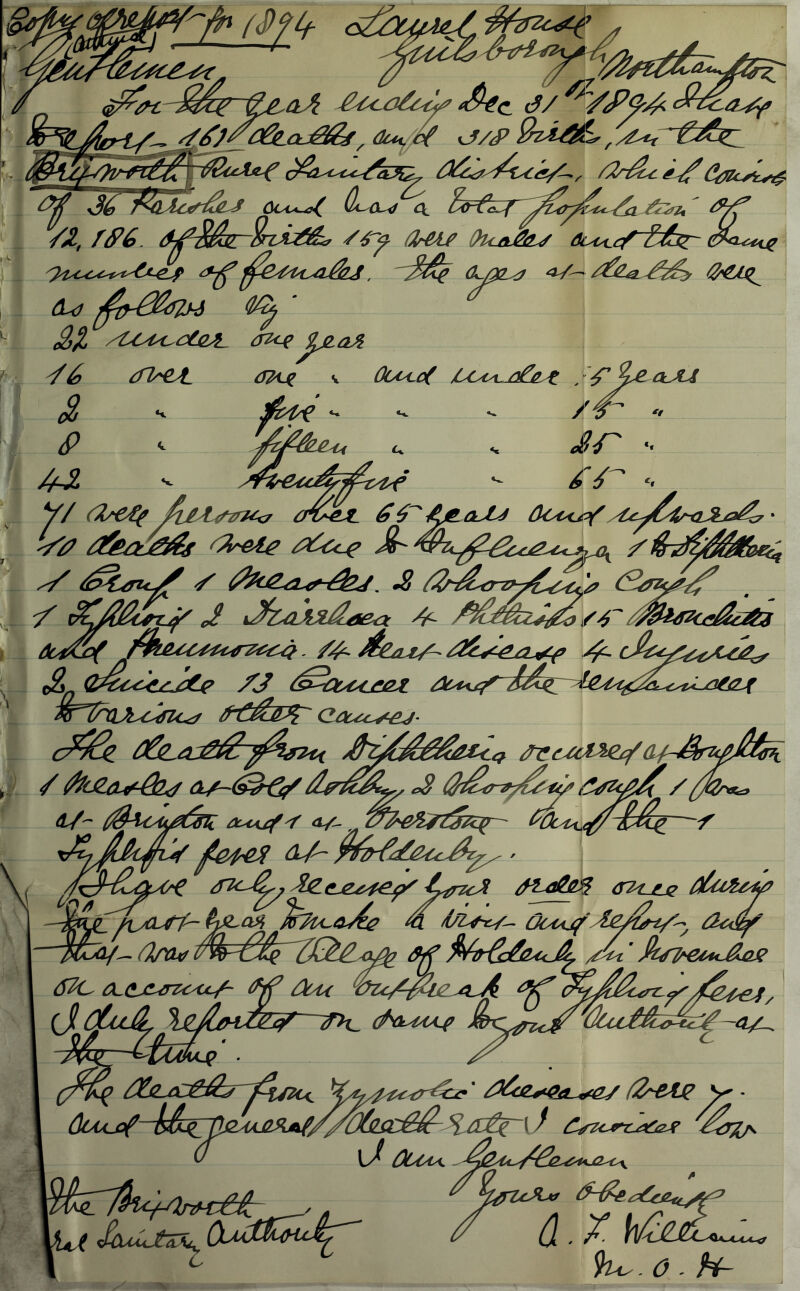 Copy of report for 1894 Laurel House
(annual) Guilsborough
Gentlemen Northampton
For the year ending Dec 31st 1894 I have
to report - 161 deaths, and 318 births, in the
Brixworth Rural Sanitary district, which consists
of 36 Parishes and has a total population of
12,186. Of the births 159 were males and the same
number of females. The ages at deaths were
as follows viz
22 under one year
16 over one " and under 5 years
2 " five " " " 15 "
8 " fifteen " " 25 "
42 " twenty five " 65 "
71 were persons over 65 years and upwards.
10 deaths were due to Influenza, 1 to Diphtheria
1 Croup 1 Measles. 2 Whooping Cough
1 Typhoid 2 Diarrhoea 4 Phthisis 15 Bronchitis
and Pneumonia. 14 Heart disease 4 Injuries
2 Suicide 13 Cancer and the remainder
to various other causes.
The death from Diphtheria occurred at Boughton
1 Measles at Cold Ashby, 2 Whooping cough 1 was
at Brington and 1 at Overstone and the 1
Typhoid fever at Holdenby.
I have only received your order once during
the past year to make a visit and report, and
that was to the Village of Holdenby in November
on account of an outbreak of Typhoid fever,
I duly reported on same to your Authority at
the time.
The deaths from Zymotic diseases were 7.
and the general death rate I consider low
I am Gentlemen
The Brixworth Yours obediently
Sanitary Authority A. F. Williams
M.O.H